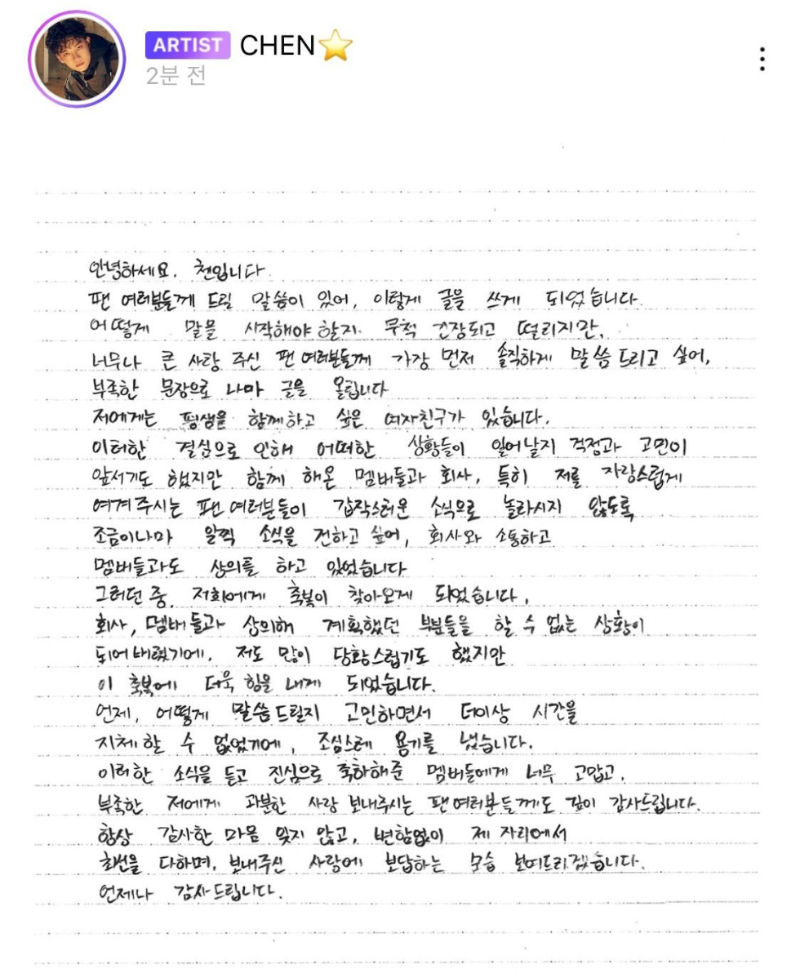 ARTIST CHEN
2분 전
안녕하세요. 첸입니다.
팬 여러분들께 드릴 말씀이 있어, 이렇게 글을 쓰게 되었습니다.
어떻게 말을 시작해야 할지 무척 긴장되고 떨리지만,
너무나 큰 사랑 주신 팬 여러분들께 가장 먼저 솔직하게 말씀드리고 싶어,
부족한 문장으로 나마 글을 올립니다
저에게는 평생을 함께하고 싶은 여자친구가 있습니다.
이러한 결심으로 인해 어떠한 상황들이 일어날지 걱정과 고민이
앞서기도 했지만 함께 해온 멤버들과 회사, 특히 저를 자랑스럽게
여겨주시는 팬 여러분들이 갑작스러운 소식으로 놀라시지 않도록
조금이나마 일찍 소식을 전하고 싶어, 회사와 소통하고
멤버들과도 상의를 하고 있었습니다
그러던 중, 저희에게 축복이 찾아오게 되었습니다.
회사, 멤버들과 상의해 계획했던 부분들을 할 수 없는 상황이
되어버렸기에, 저도 많이 당황스럽기도 했지만
이 축복에 더욱 힘을 내게 되었습니다.
언제, 어떻게 말씀드릴지 고민하면서 더이상 시간을
지체할 수 없었기에, 조심스레 용기를 냈습니다.
이러한 소식을 듣고 진심으로 축하해준 멤버들에게 너무 고맙고,
부족한 저에게 과분한 사랑 보내주시는 팬 여러분들께도 깊이 감사드립니다.
항상 감사한 마음 잊지 않고, 변함없이 제 자리에서
최선을 다하며, 보내주신 사랑에 보답하는 모습 보여드리겠습니다.
언제나 감사드립니다.